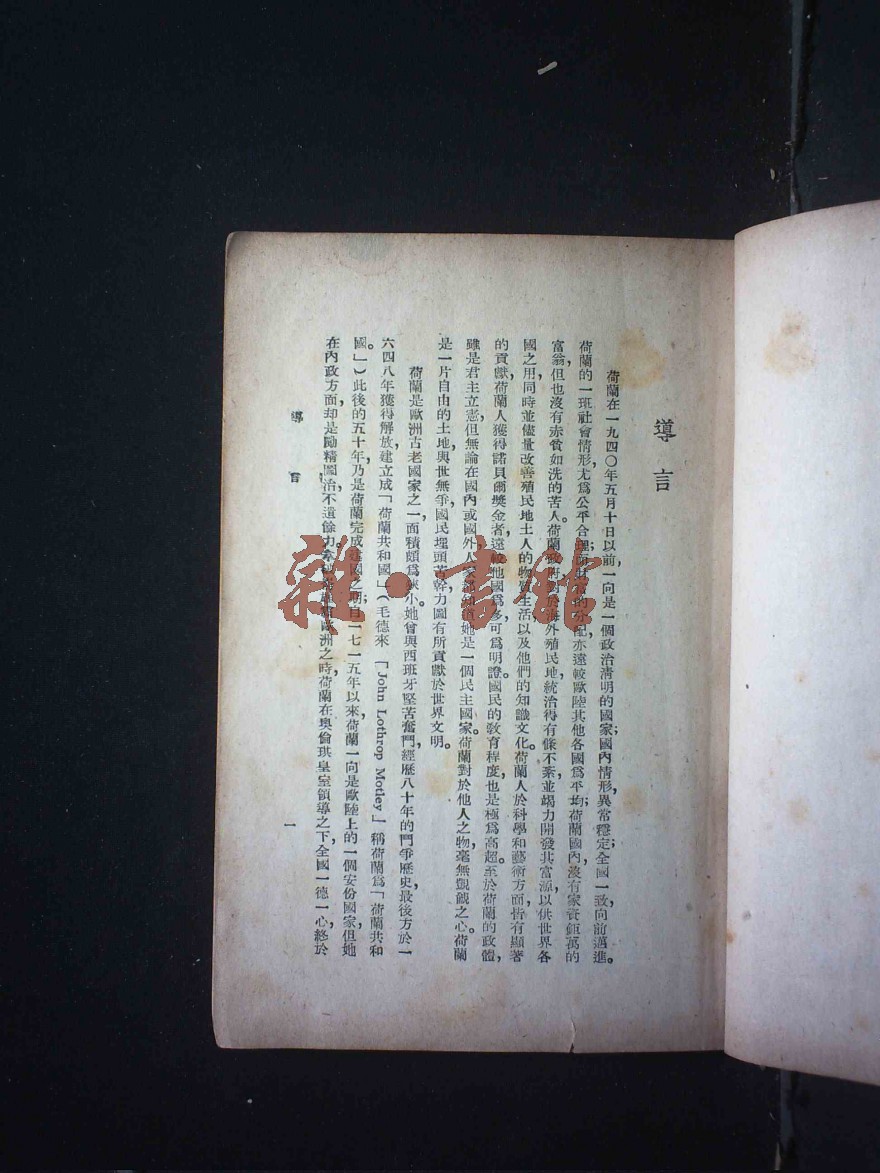 導言
荷蘭在一九四〇年五月十日以前，一向是一個政治清明的國家；國內情形，異常穩定；全國一致向前邁進。
荷蘭的一班社會情形，尤爲公平合理；而財富的分配，亦遠較歐陸其他各國爲平均；荷蘭國內，沒有家資鉅萬的
富翁，但也沒有赤貧如洗的苦人。荷蘭政府對於海外殖民地，統治得有條不紊，並竭力開發其富源，以供世界各
國之用，同時並儘量改善殖民地土人的物質生活以及他們的知識文化。荷蘭人於科學和藝術方面，皆有顯著
的貢獻，荷蘭人獲得諾貝爾獎金者，遠較他國爲多，可爲明證。國民的敎育程度，也是極爲高超。至於荷蘭的政體，
雖是君主立憲，但無論在國內或國外，人家都知道她是一個民主國家。荷蘭對於他人之物，毫無覬覦之心。荷蘭
是一片自由的土地，與世無爭，國民埋頭苦幹，力圖有所貢獻於世界文明。
荷蘭是歐洲古老國家之一，面積頗爲狹小。她曾與西班牙堅苦奮鬥，經歷八十年的鬥爭歷史，最後方於一
六四八年獲得解放，建立成「荷蘭共和國」（毛德來 [John Lothrop Motley] 稱荷蘭爲「荷蘭共和
國。」）此後的五十年，乃是荷蘭完成建國之期；自一七一五年以來，荷蘭一向是歐陸上的一個安份國家，但她
在內政方面，却是勵精圖治，不遺餘力。拿破崙
歐洲之時，荷蘭在奧倫琪皇室領導之下，全國一德一心，終於
導言
一
雜·書館